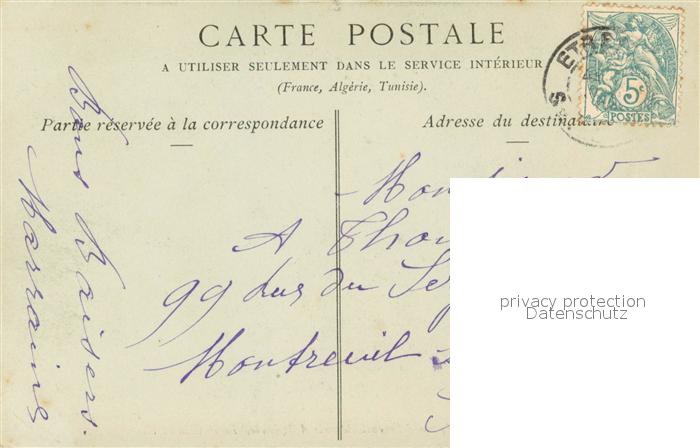 CARTE POSTALE
A UTILISER SEULEMENT DANS LE SERVICE INTÉRIEUR
(France, Algérie, Tunisie).
Partie réservée à la correspondance
Adresse du destinataire
5c
POSTES
ETRE
Bons Baisers.
Marraine
A Thou
99 du
Montreuil
privacy protection
Datenschutz